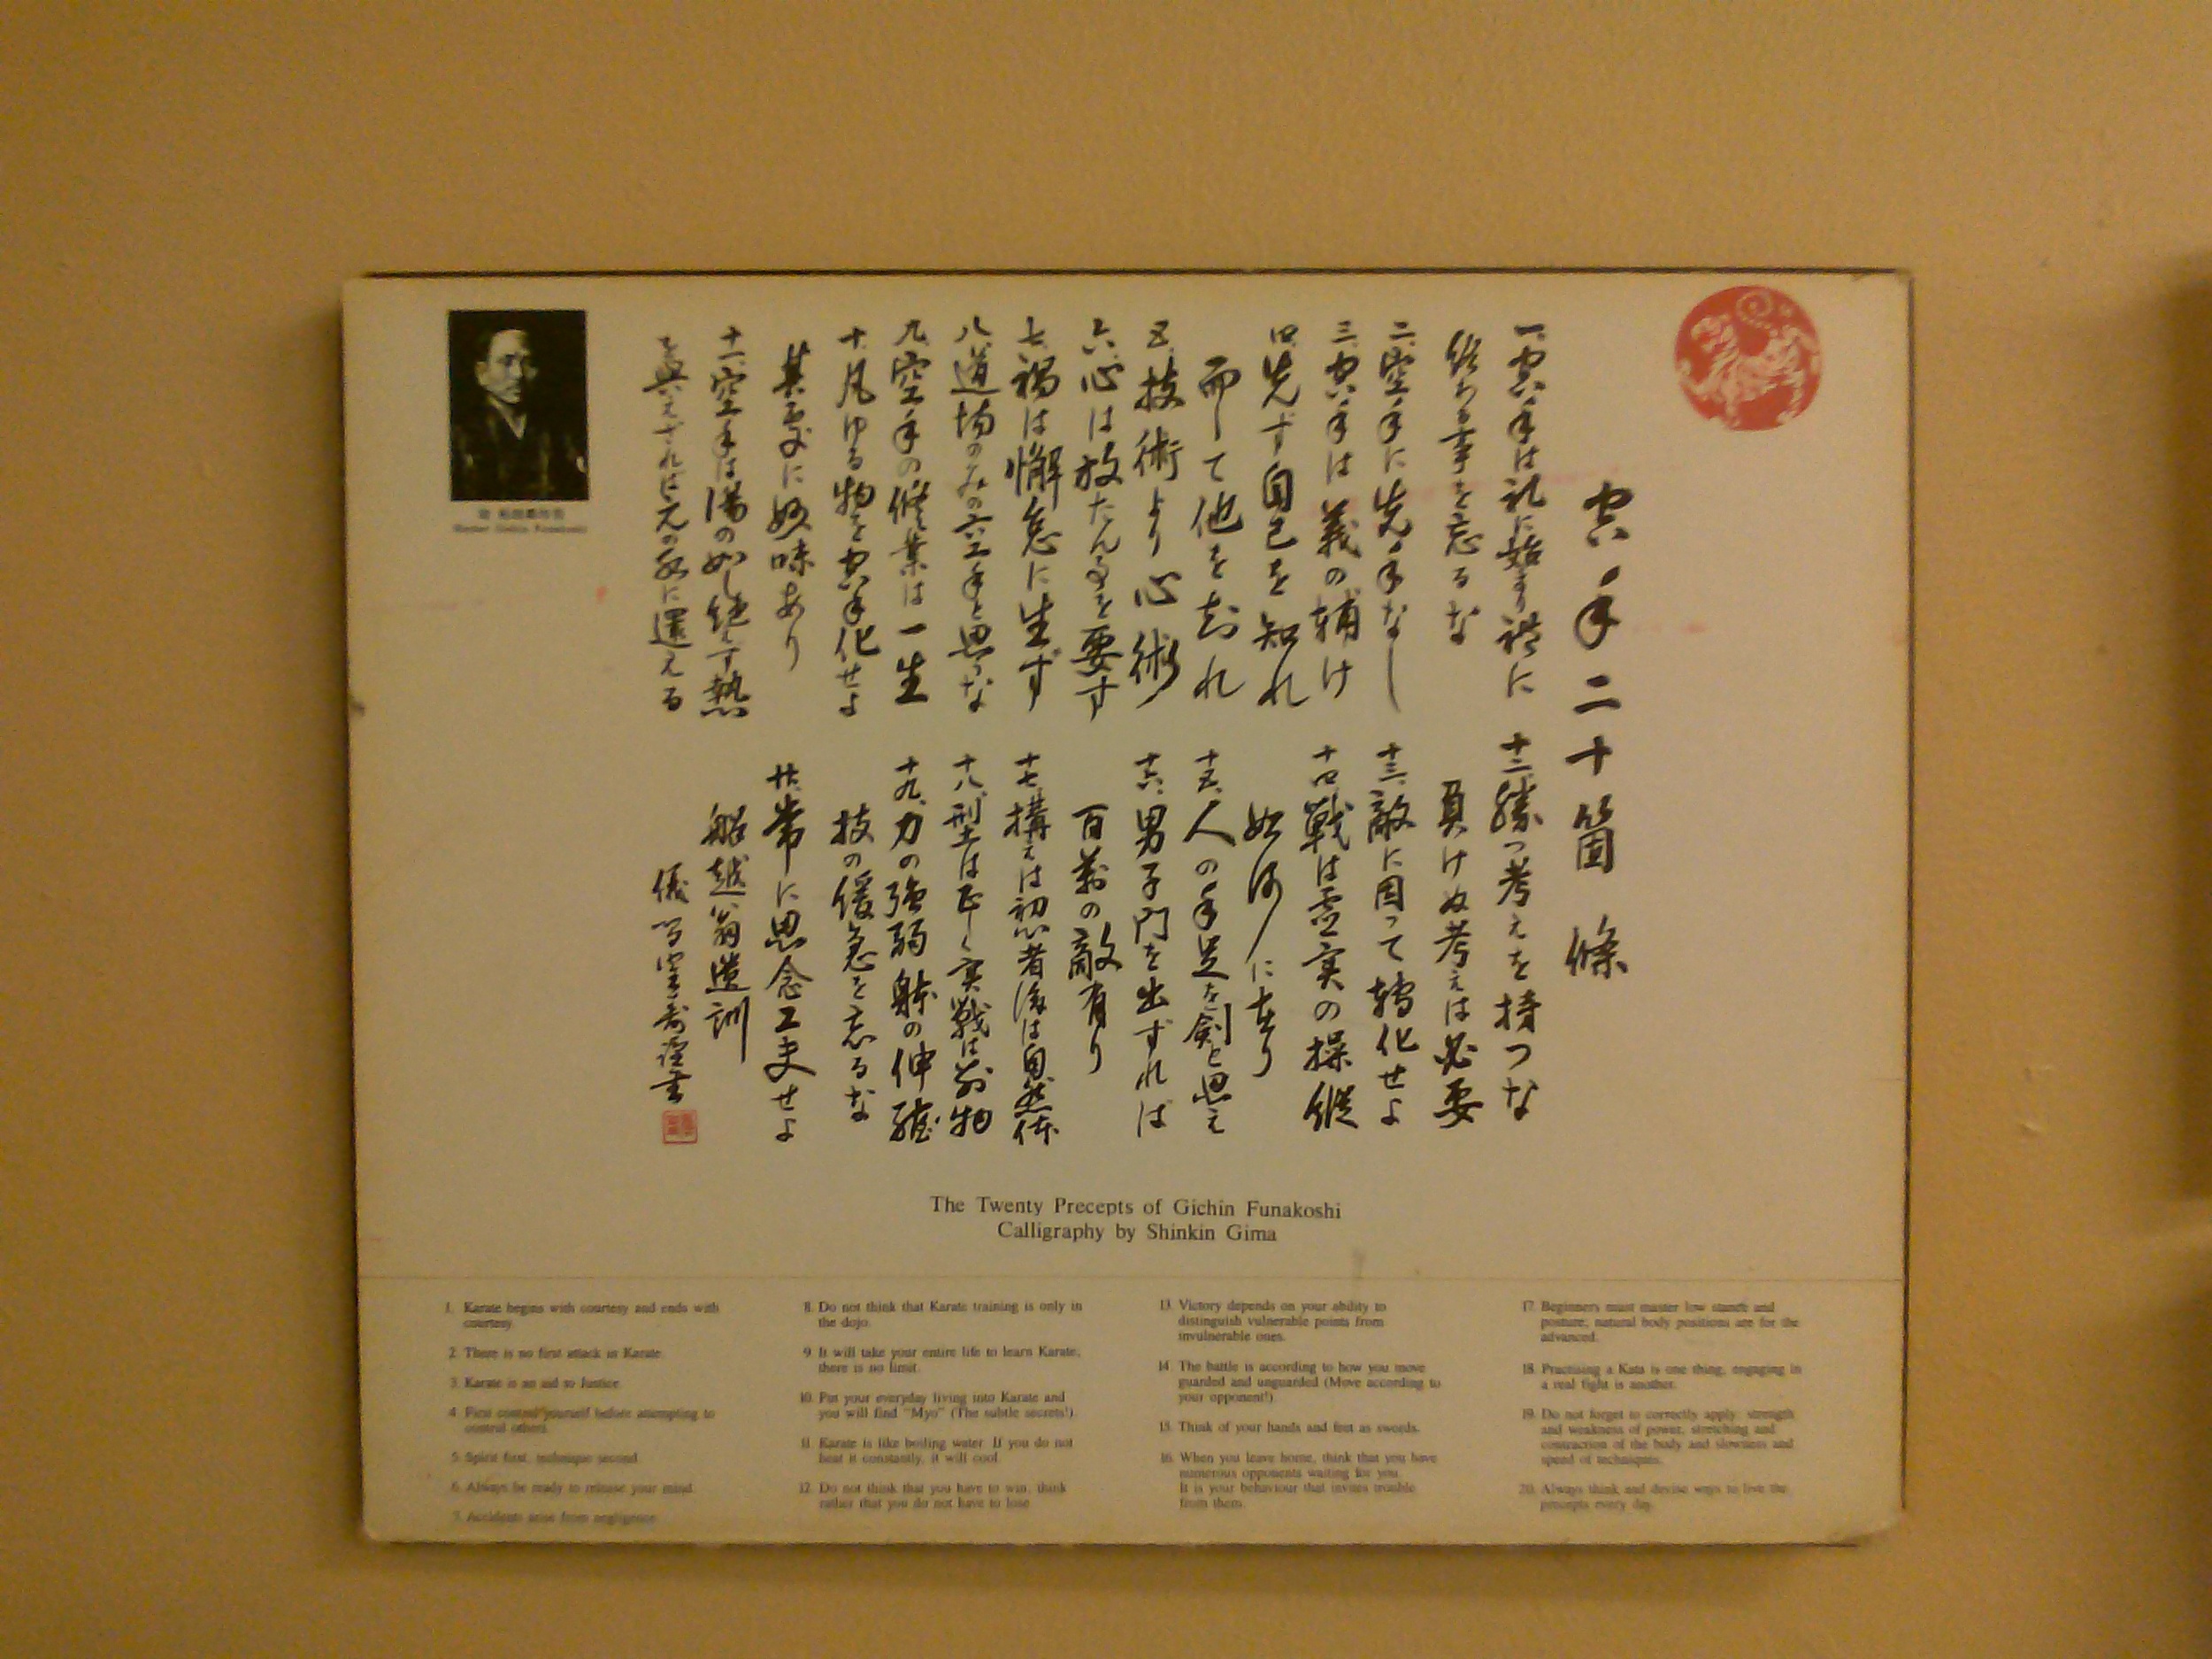 空手二十箇條
一、空手は礼に始まり礼に
終る事を忘るな
二、空手に先手なし
三、空手は義の補け
四、先ず自己を知れ
而して他を知れ
五、技術より心術
六、心は放たん事を要す
七、禍は懈怠に生ず
八、道場のみの空手と思うな
九、空手の修業は一生
十、凡ゆる物を空手化せよ
其処に妙味あり
十一、空手は湯の如し絶えず熱
を与えざれば元の水に還える
十二、勝つ考えを持つな
負けぬ考えは必要
十三、敵に因って轉化せよ
十四、戦は虚実の操縦
如何に在り
十五、人の手足を剣と思え
十六、男子門を出ずれば
百萬の敵有り
十七、構えは初心者後は自然体
十八、型は正しく実戦は別物
十九、力の強弱躰の伸縮
技の緩急を忘るな
廿、常に思念工夫せよ
船越翁遺訓
The Twenty Precepts of Gichin Funakoshi
Calligraphy by Shinkin Gima
1. Karate begins with courtesy and ends with
courtesy.
2. There is no first attack in Karate.
3. Karate is an aid to Justice.
4. First control yourself before attempting to
control others.
5. Spirit first, technique second.
6. Always be ready to release your mind.
7. Accidents arise from negligence.
8. Do not think that Karate training is only in
the dojo.
9. It will take your entire life to learn Karate,
there is no limit.
10. Put your everyday living into Karate and
you will find "Myo" (The subtle secrets!).
11. Karate is like boiling water. If you do not
heat it constantly, it will cool.
12. Do not think that you have to win, think
rather that you do not have to lose.
13. Victory depends on your ability to
distinguish vulnerable points from
invulnerable ones.
14. The battle is according to how you move
guarded and unguarded (Move according to
your opponent!).
15. Think of your hands and feet as swords.
16. When you leave home, think that you have
numerous opponents waiting for you.
It is your behaviour that invites trouble
from them.
17. Beginners must master low stance and
posture, natural body positions are for the
advanced.
18. Practising a Kata is one thing, engaging in
a real fight is another.
19. Do not forget to correctly apply: strength
and weakness of power, stretching and
contraction of the body and slowness and
speed of techniques.
20. Always think and devise ways to live the
precepts every day.